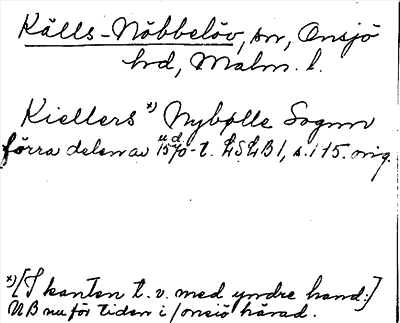 Källs-Nöbbelöv, sn, Onsjö
hd, Malm. l.
Kiellers *) Nybølle Sognn
förra delen av 1570-t. LSLB 1, s. 115. orig.
*) [I kanten t. v. med yndre hand:]
NB nu för tiden i / onsiö härad.